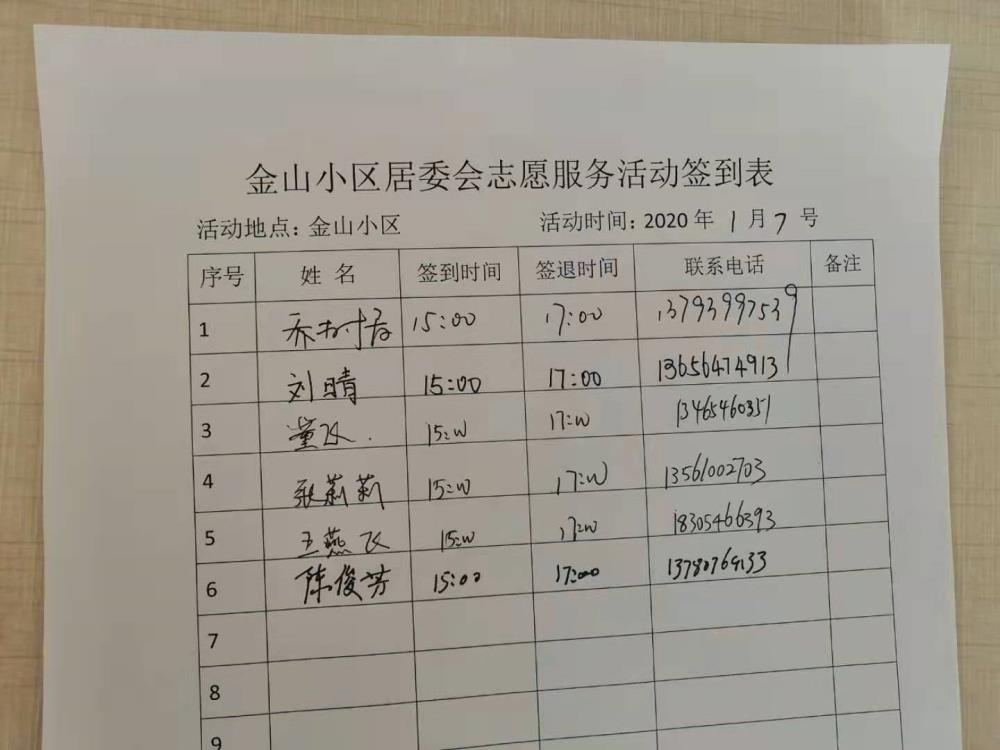 金山小区居委会志愿服务活动签到表
活动地点：金山小区 活动时间：2020 年 1 月 7 号
序号 姓名 签到时间 签退时间 联系电话 备注
1 乔树君 15:00 17:00 13793997539
2 刘晴 15:00 17:00 13656474913
3 董飞. 15:00 17:00 13465460351
4 张莉莉 15:00 17:00 13561002703
5 王燕飞 15:00 17:00 18305466393
6 陈俊芳 15:00 17:00
7
8
9